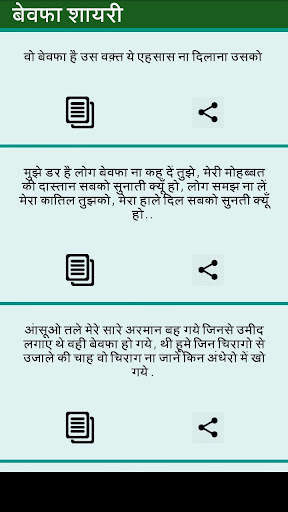 बेवफा शायरी
वो बेवफा है उस वक़्त ये एहसास ना दिलाना उसको
मुझे डर है लोग बेवफा ना कह दें तुझे, मेरी मोहब्बत
की दास्तान सबको सुनाती क्यूँ हो, लोग समझ ना लें
मेरा कातिल तुझको, मेरा हाले दिल सबको सुनती क्यूँ
हो..
आंसूओ तले मेरे सारे अरमान बह गये जिनसे उमीद
लगाए थे वही बेवफा हो गये, थी हूमे जिन चिरागो से
उजाले की चाह वो चिराग ना जाने किन अंधेरो में खो
गये .